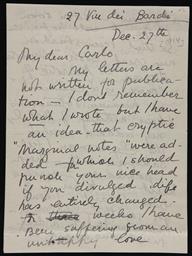 27 Via dei Bardi
Dec. 27th
My dear Carlo
My letters are
not written for publica-
tion — I don't remember
what I wrote but I have
an idea that cryptic
"marginal notes" were ad-
ded — I should
your nice head
if you divulged
has entirely changed.
weeks I have
been suffering from an
unhappy love